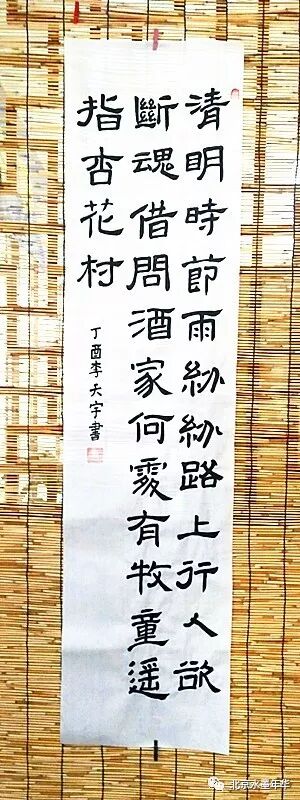 清明時節雨紛紛路上行人欲
斷魂借問酒家何處有牧童遥
指杏花村
丁酉李天宇書
北京水墨年华